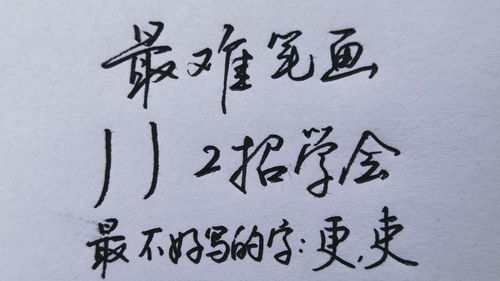 最难笔画
丿丿 2招学会
最不好写的字: 更,吏